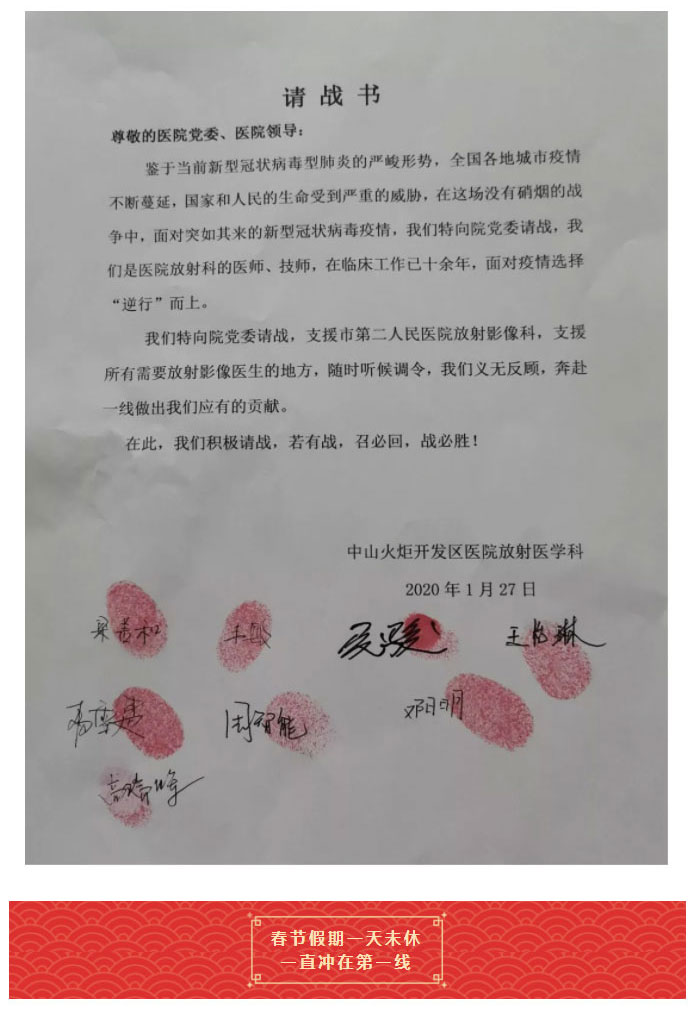 请战书
尊敬的医院党委、医院领导：
鉴于当前新型冠状病毒型肺炎的严峻形势，全国各地城市疫情
不断蔓延，国家和人民的生命受到严重的威胁，在这场没有硝烟的战
争中，面对突如其来的新型冠状病毒疫情，我们特向院党委请战，我
们是医院放射科的医师、技师，在临床工作已十余年，面对疫情选择
“逆行”而上。
我们特向院党委请战，支援市第二人民医院放射影像科，支援
所有需要放射影像医生的地方，随时听候调令，我们义无反顾，奔赴
一线做出我们应有的贡献。
在此，我们积极请战，若有战，召必回，战必胜！
中山火炬开发区医院放射医学科
2020年1月27日
周智能
邓明
春节假期一天未休
一直冲在第一线